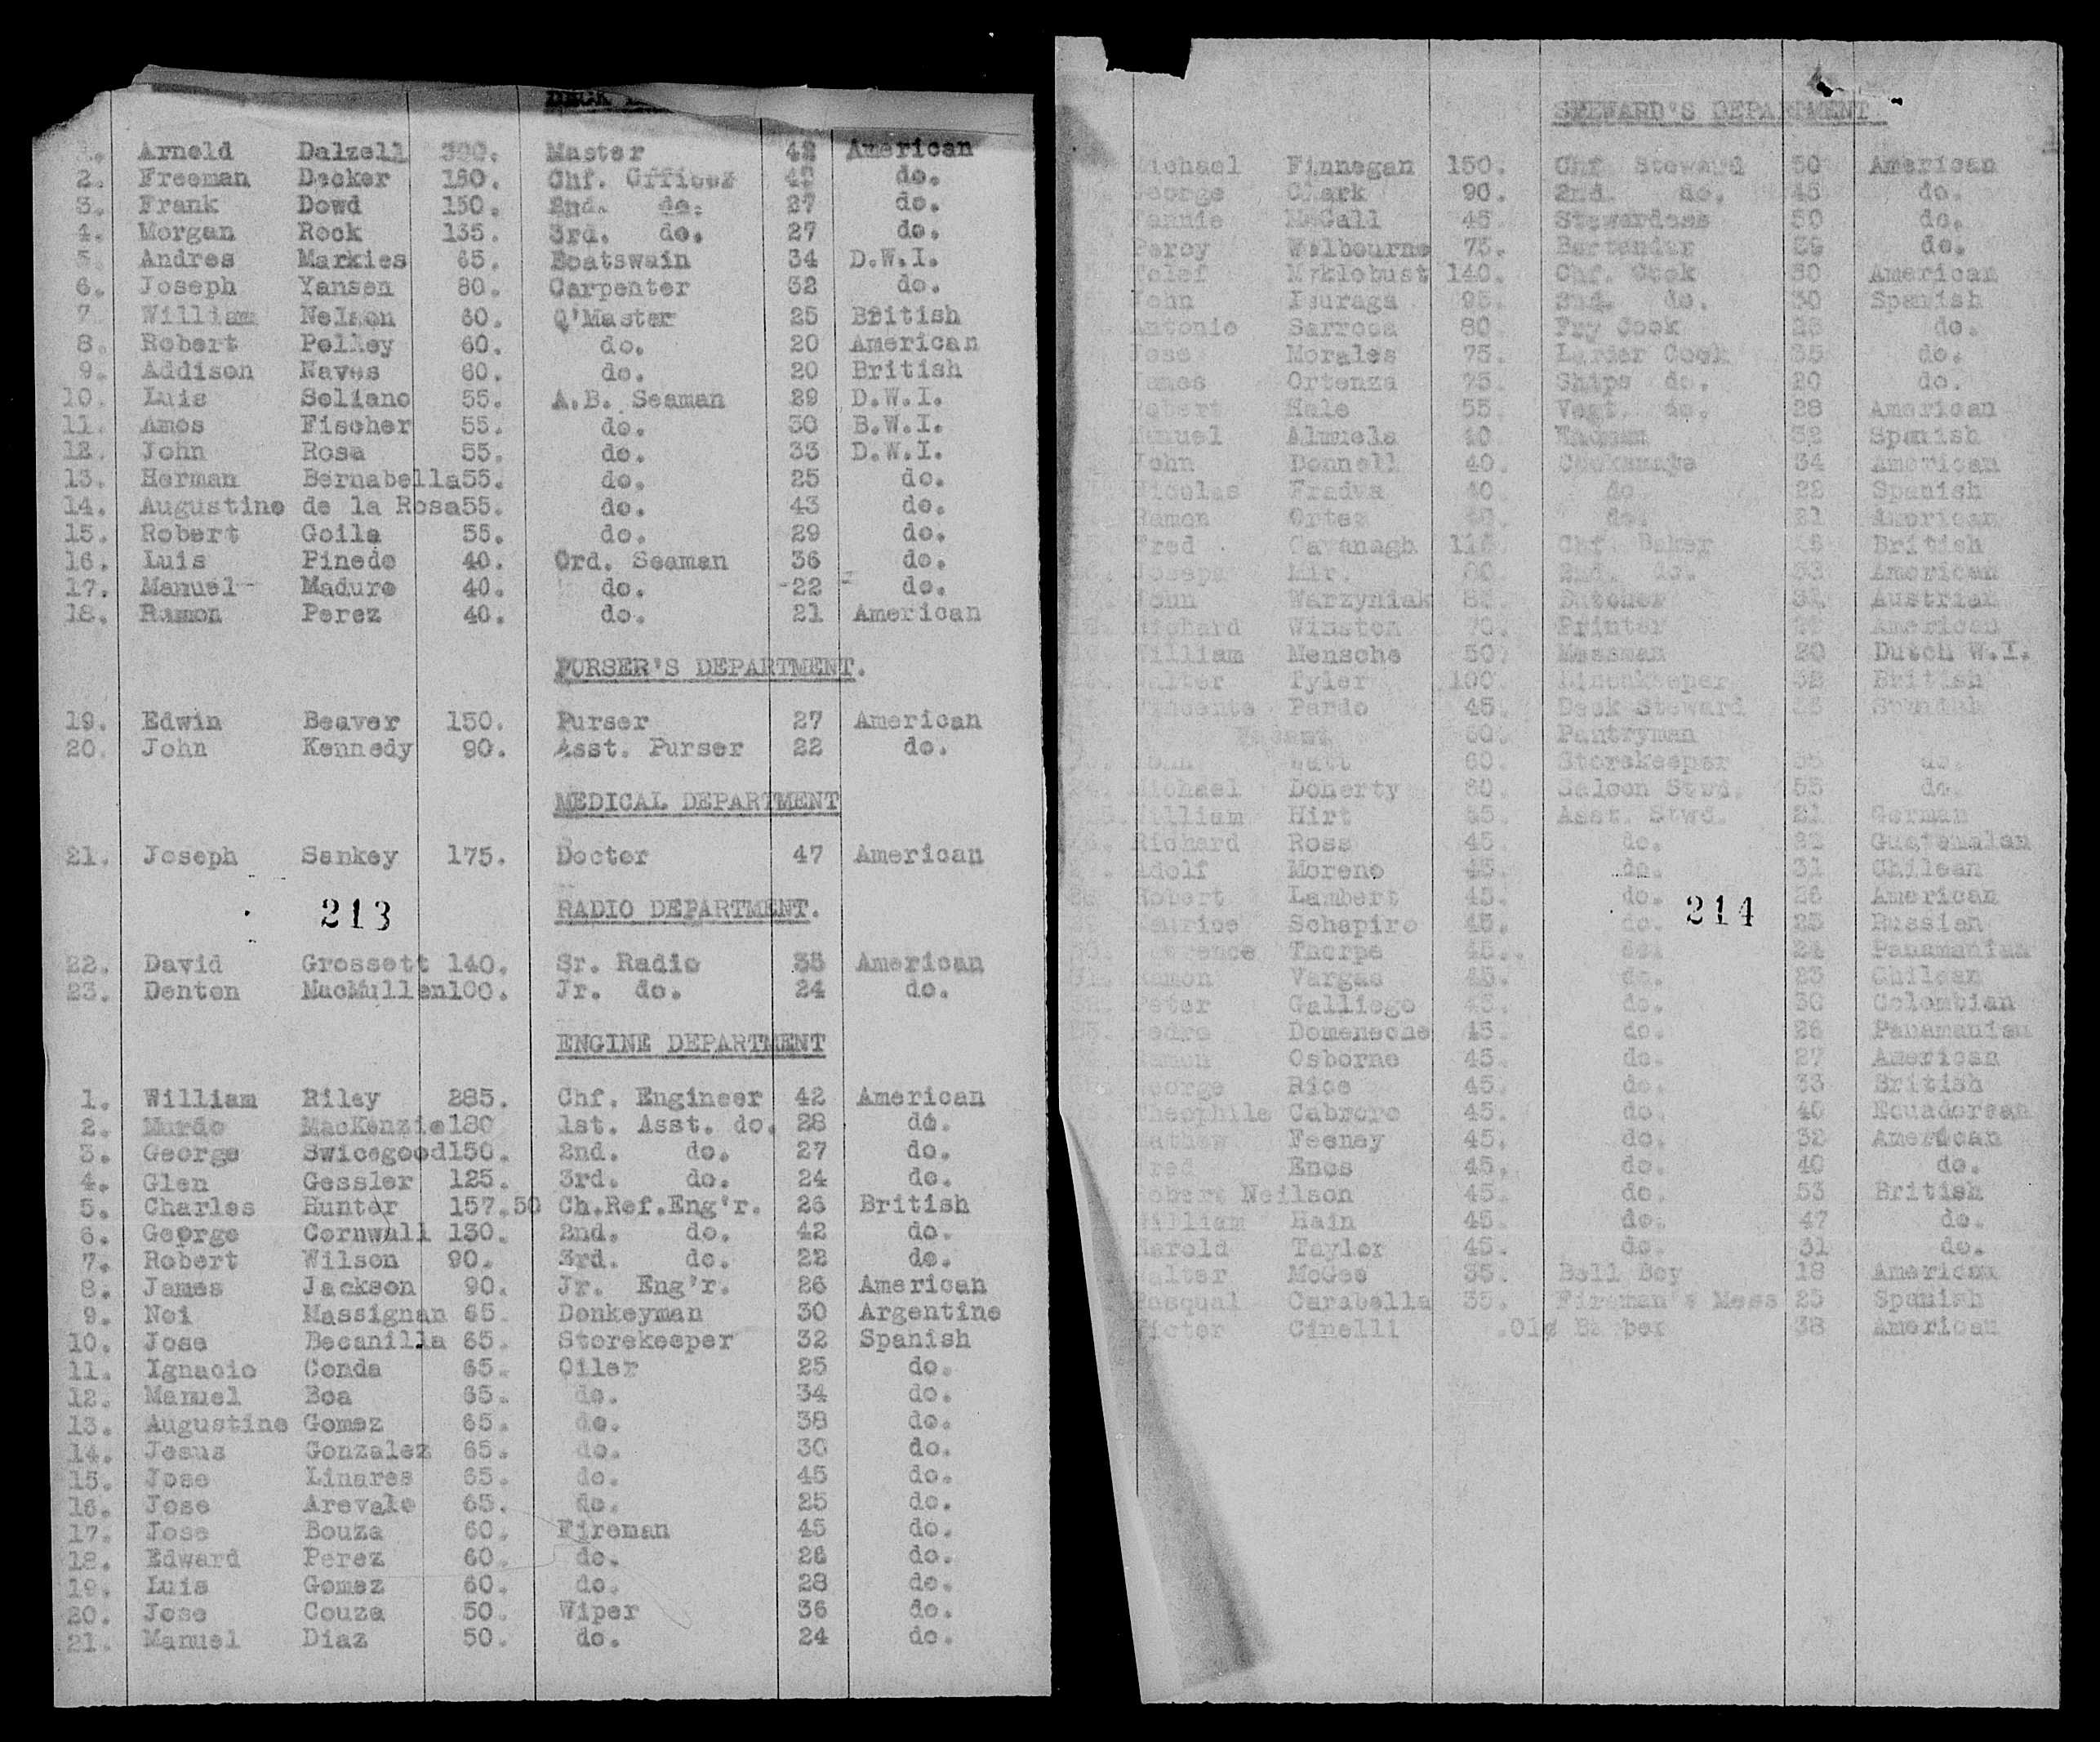 DECK
1. Arnold Dalzell 300. Master 42 American
2. Freeman Decker 180. Chf. Officer 42 do.
3. Frank Dowd 150. 2nd. do. 27 do.
4. Morgan Rock 135. 3rd. do. 27 do.
5. Andres Markies 65. Boatswain 34 D.W.I.
6. Joseph Yansen 80. Carpenter 32 do.
7. William Nelson 60. Q'Master 25 British
8. Robert Pelley 60. do. 20 American
9. Addison Naves 60. do. 20 British
10. Luis Soliano 55. A.B. Seaman 29 D.W.I.
11. Amos Fischer 55. do. 30 B.W.I.
12. John Rosa 55. do. 33 D.W.I.
13. Herman Bernabella 55. do. 25 do.
14. Augustine de la Rosa 55. do. 43 do.
15. Robert Goila 55. do. 29 do.
16. Luis Pinedo 40. Ord. Seaman 36 do.
17. Manuel Maduro 40. do. 22 do.
18. Ramon Perez 40. do. 21 American
PURSER'S DEPARTMENT.
19. Edwin Beaver 150. Purser 27 American
20. John Kennedy 90. Asst. Purser 22 do.
MEDICAL DEPARTMENT
21. Joseph Sankey 175. Doctor 47 American
213
RADIO DEPARTMENT.
22. David Grossett 140. Sr. Radio 35 American
23. Denton MacMullen 100. Jr. do. 24 do.
ENGINE DEPARTMENT
1. William Riley 285. Chf. Engineer 42 American
2. Murdo MacKenzie 180 1st. Asst. do. 28 do.
3. George Swicegood 150. 2nd. do. 27 do.
4. Glen Gessler 125. 3rd. do. 24 do.
5. Charles Hunter 157.50 Ch.Ref.Eng'r. 26 British
6. George Cornwall 130. 2nd. do. 42 do.
7. Robert Wilson 90. 3rd. do. 22 do.
8. James Jackson 90. Jr. Eng'r. 26 American
9. Noi Massignan 65. Donkeyman 30 Argentine
10. Jose Becanilla 65. Storekeeper 32 Spanish
11. Ignacio Conda 65. Oiler 25 do.
12. Manuel Boa 65. do. 34 do.
13. Augustine Gomez 65. do. 38 do.
14. Jesus Gonzalez 65. do. 30 do.
15. Jose Linares 65. do. 45 do.
16. Jose Arevalo 65. do. 25 do.
17. Jose Bouza 60. Fireman 45 do.
18. Edward Perez 60. do. 26 do.
19. Luis Gomez 60. do. 28 do.
20. Jose Couza 50. Wiper 36 do.
21. Manuel Diaz 50. do. 24 do.
STEWARD'S DEPARTMENT
Michael Finnegan 150. Chf. Steward 50 American
George Clark 90. 2nd. do. 45 do.
Fannie McCall 45 Stewardess 50 do.
Percy Welbourne 75. Bartender do.
Tolef Myklebust 140. Chf. Cook 50 American
John Isuraga 95. 2nd. do. 30 Spanish
Antonio Sarroca 80. Fry Cook do.
Jose Morales 75. Larder Cook 35 do.
James Ortenza 75. Ships do. 20 do.
Robert Hale 55. Vegt. do. 28 American
Manuel Almuela 40. 32 Spanish
John Donnell 40. Cooksmate 34 American
Nicolas Fradva 40. do 22 Spanish
Ramon Ortez 40. do. 21 American
Fred Cavanagh Chf. Baker British
Joseph Mir. 80. 2nd. do. 53 American
John Warzyniak Butcher Austrian
Richard Winston 70. Printer American
William Mensche 50. Messman 20 Dutch W.I.
Walter Tyler 100. Linenkeeper British
Vincente Pardo 45. Deck Steward Spanish
Vacant 60. Pantryman
John 60. Storekeeper do.
24. Michael Doherty 60. Saloon Stwd. 55 do.
25. William Hirt 65. Asst. Stwd. 21 German
26. Richard Ross 45. do. 22 Guatemalan
Adolf Moreno 45. do. 31 Chilean
Robert Lambert 45. do. 26 American
214
Maurice Schapiro 45. do. 25 Russian
Lawrence Thorpe 45. do. 24 Panamanian
31. Ramon Vargas 45. do. 23 Chilean
Peter Galliego 45. do. 30 Colombian
33. Pedro Domeneche 45. do. 26 Panamanian
Ramon Osborne 45. do. 27 American
George Rice 45. do. 33 British
Theophile Cabrero 45. do. 40 Ecuadorean
Mathew Feeney 45. do. 32 American
Fred Enos 45. do. 40 do.
Robert Neilson 45. do. 53 British
William Hain 45. do. 47 do.
Harold Taylor 45. do. 31 do.
Walter McGee 35. Bell Boy 18 American
Pasqual Carabella 35. Fireman's Mess 25 Spanish
Victor Cinelli .01¢ Barber 38 American